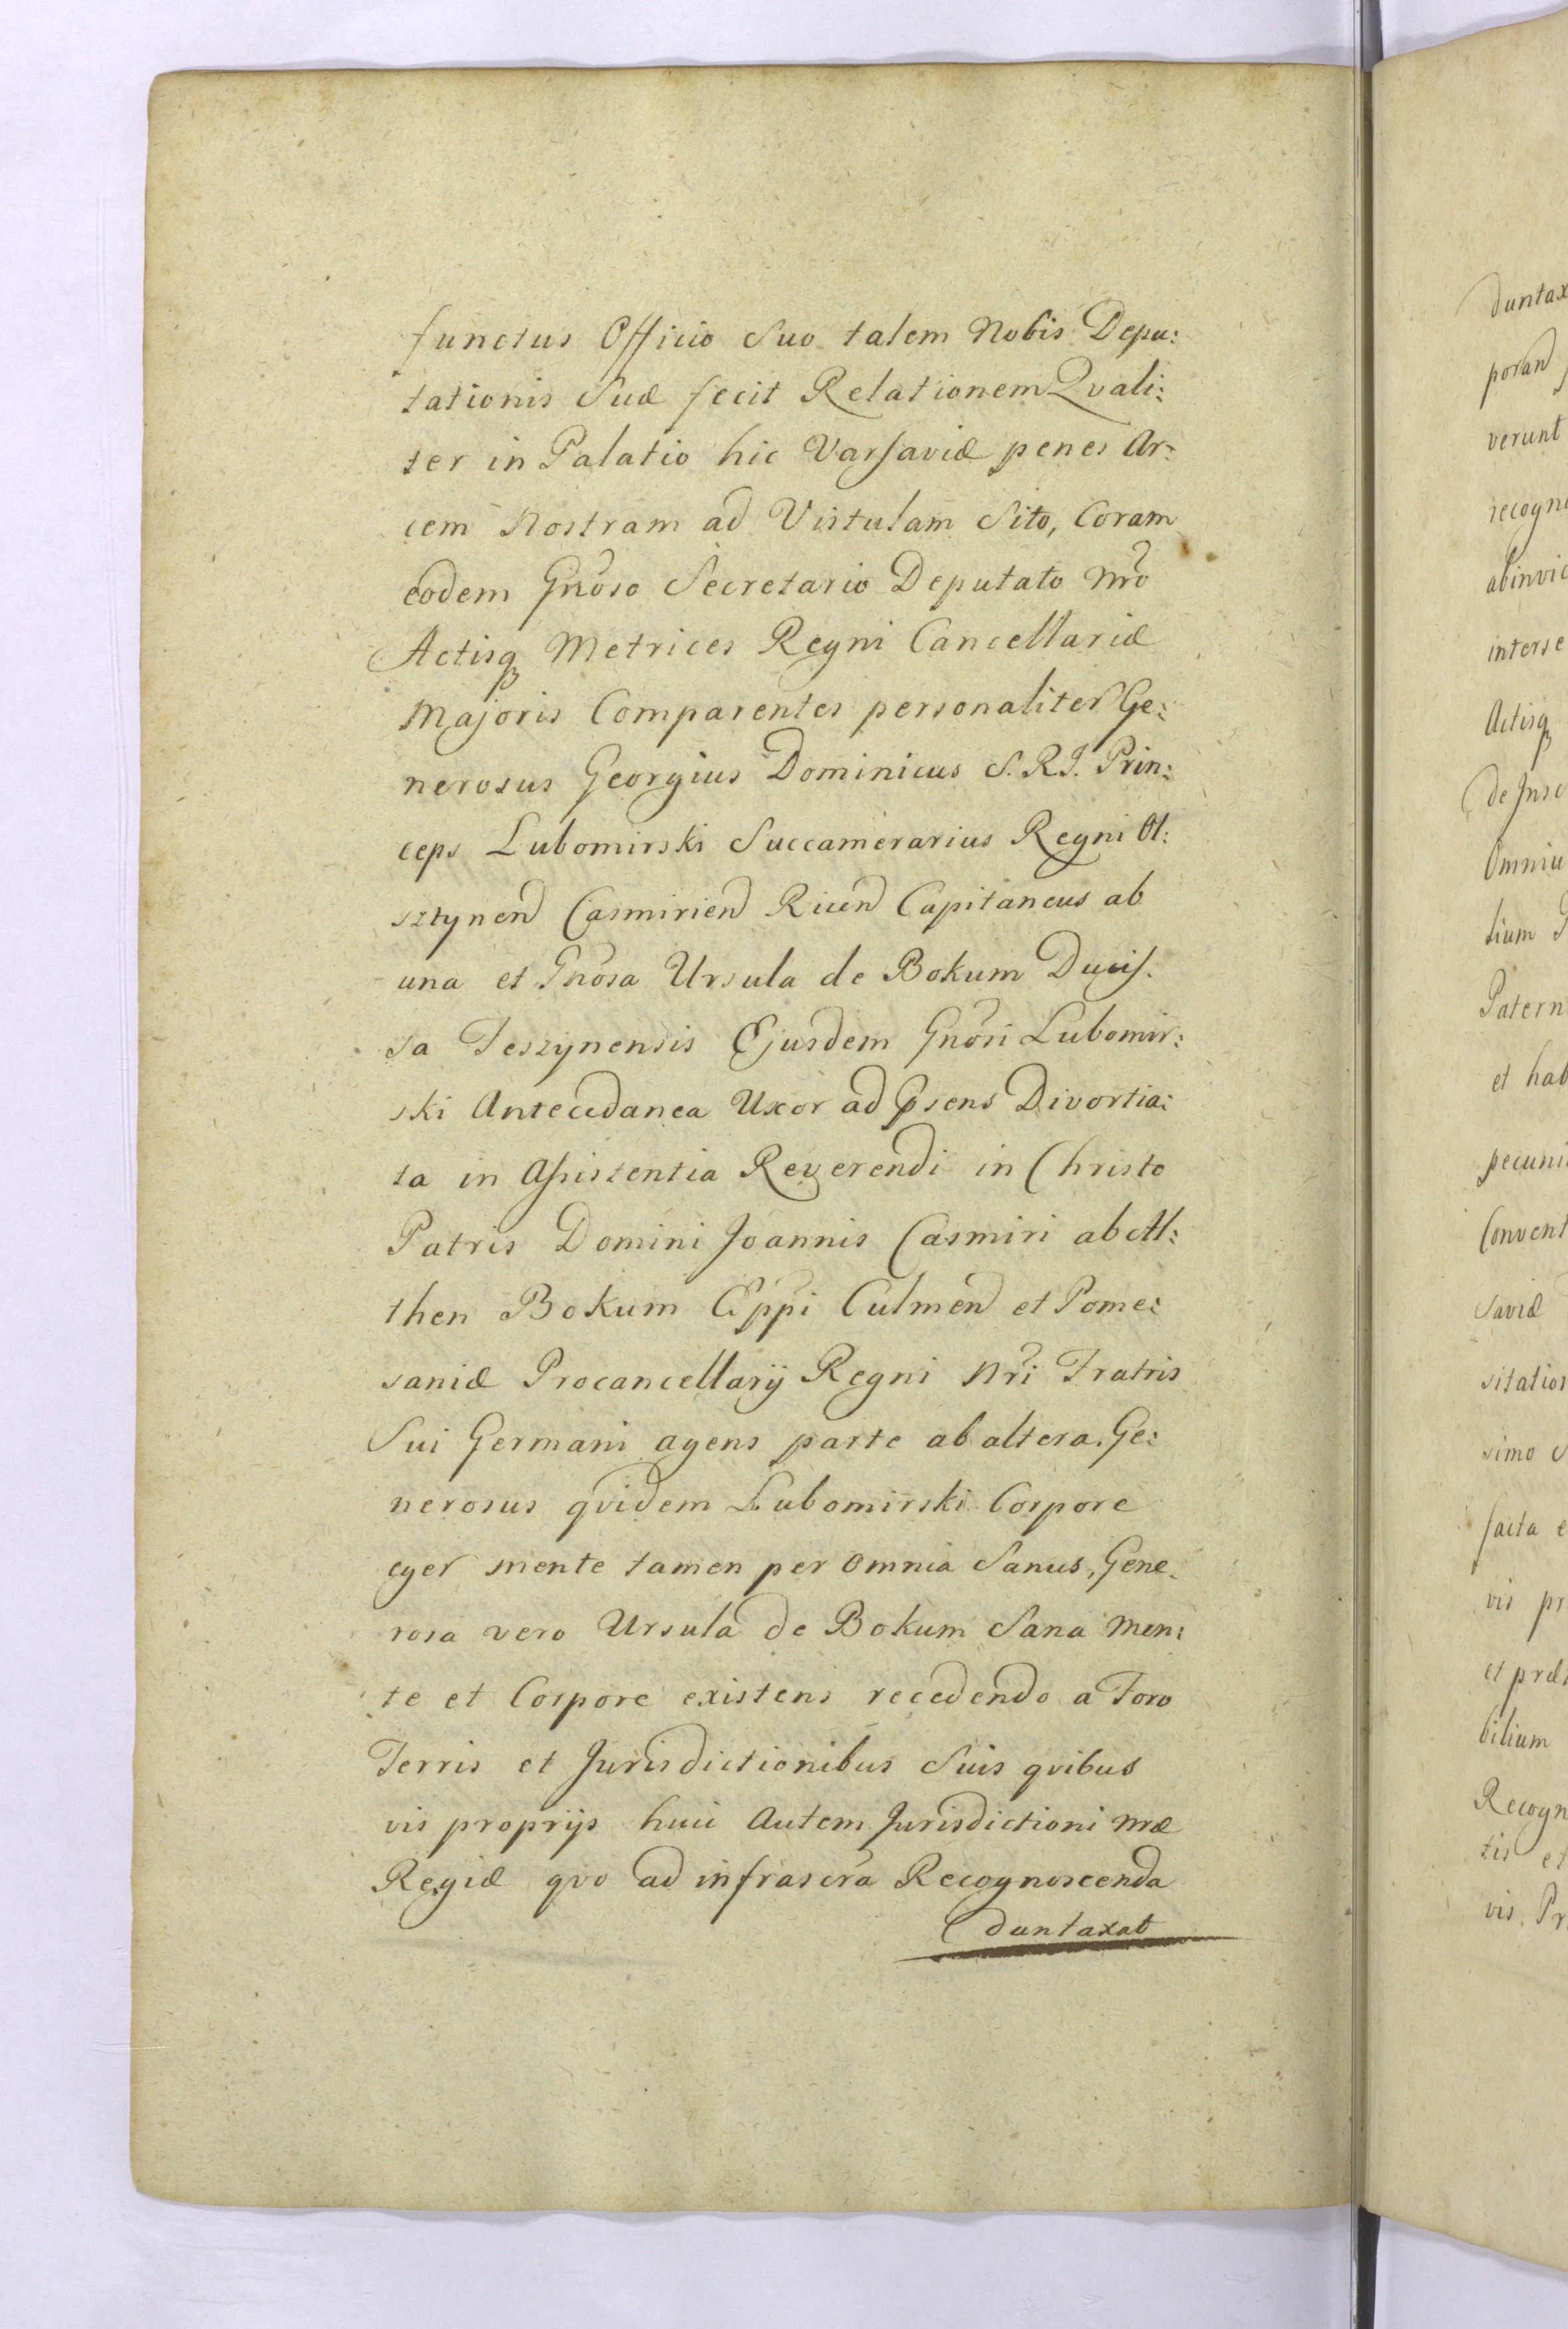 functus Officio Suo talem Nobis Depu:
tationis Suæ fecit Relationem Qvali:
ter in Palatio hic Varsaviæ penes Ar:
cem Nostram ad Vistulam Sito, Coram
eodem Gnoso Secretario Deputato Nro
Actisq Metrices Regni Cancellariæ
Majoris Comparentes personaliter Ge:
nerosus Georgius Dominicus S. R. I. Prin:
ceps Lubomirski Succamerarius Regni Ol:
sztynen Casmirien Ricen Capitaneus ab
una et Gnosa Ursula de Bokum Ducis.
sa Teszynensis Ejusdem Gnosi Lubomir:
ski Antecedanea Uxor ad Psens Divortia:
ta in Assistentia Reverendi in Christo
Patris Domini Joannis Casmiri ab Al:
then Bokum Eppi Culmen et Pome:
saniæ Procancellarij Regni Nri Fratris
Sui Germani agens parte ab altera. Ge:
nerosus qvidem Lubomirski Corpore
eger mente tamen per omnia Sanus, Gene.
rosa vero Ursula de Bokum Sana Men:
te et Corpore existens recedendo a Foro
Terris et Jurisdictionibus Suis qvibus
vis proprijs huic Autem Jurisdictioni Nræ
Regiæ qvo ad infrascra Recognoscenda
duntaxat
duntax
poran
verunt
recogno
abinvic
interse
Actisq
de Insc
Omniu
tium
Patern
et hab
pecuni
Convent
saviæ
sitation
simo
facta e
vis pr
et præ
bilium
Recogn
tis et
vis. Pr